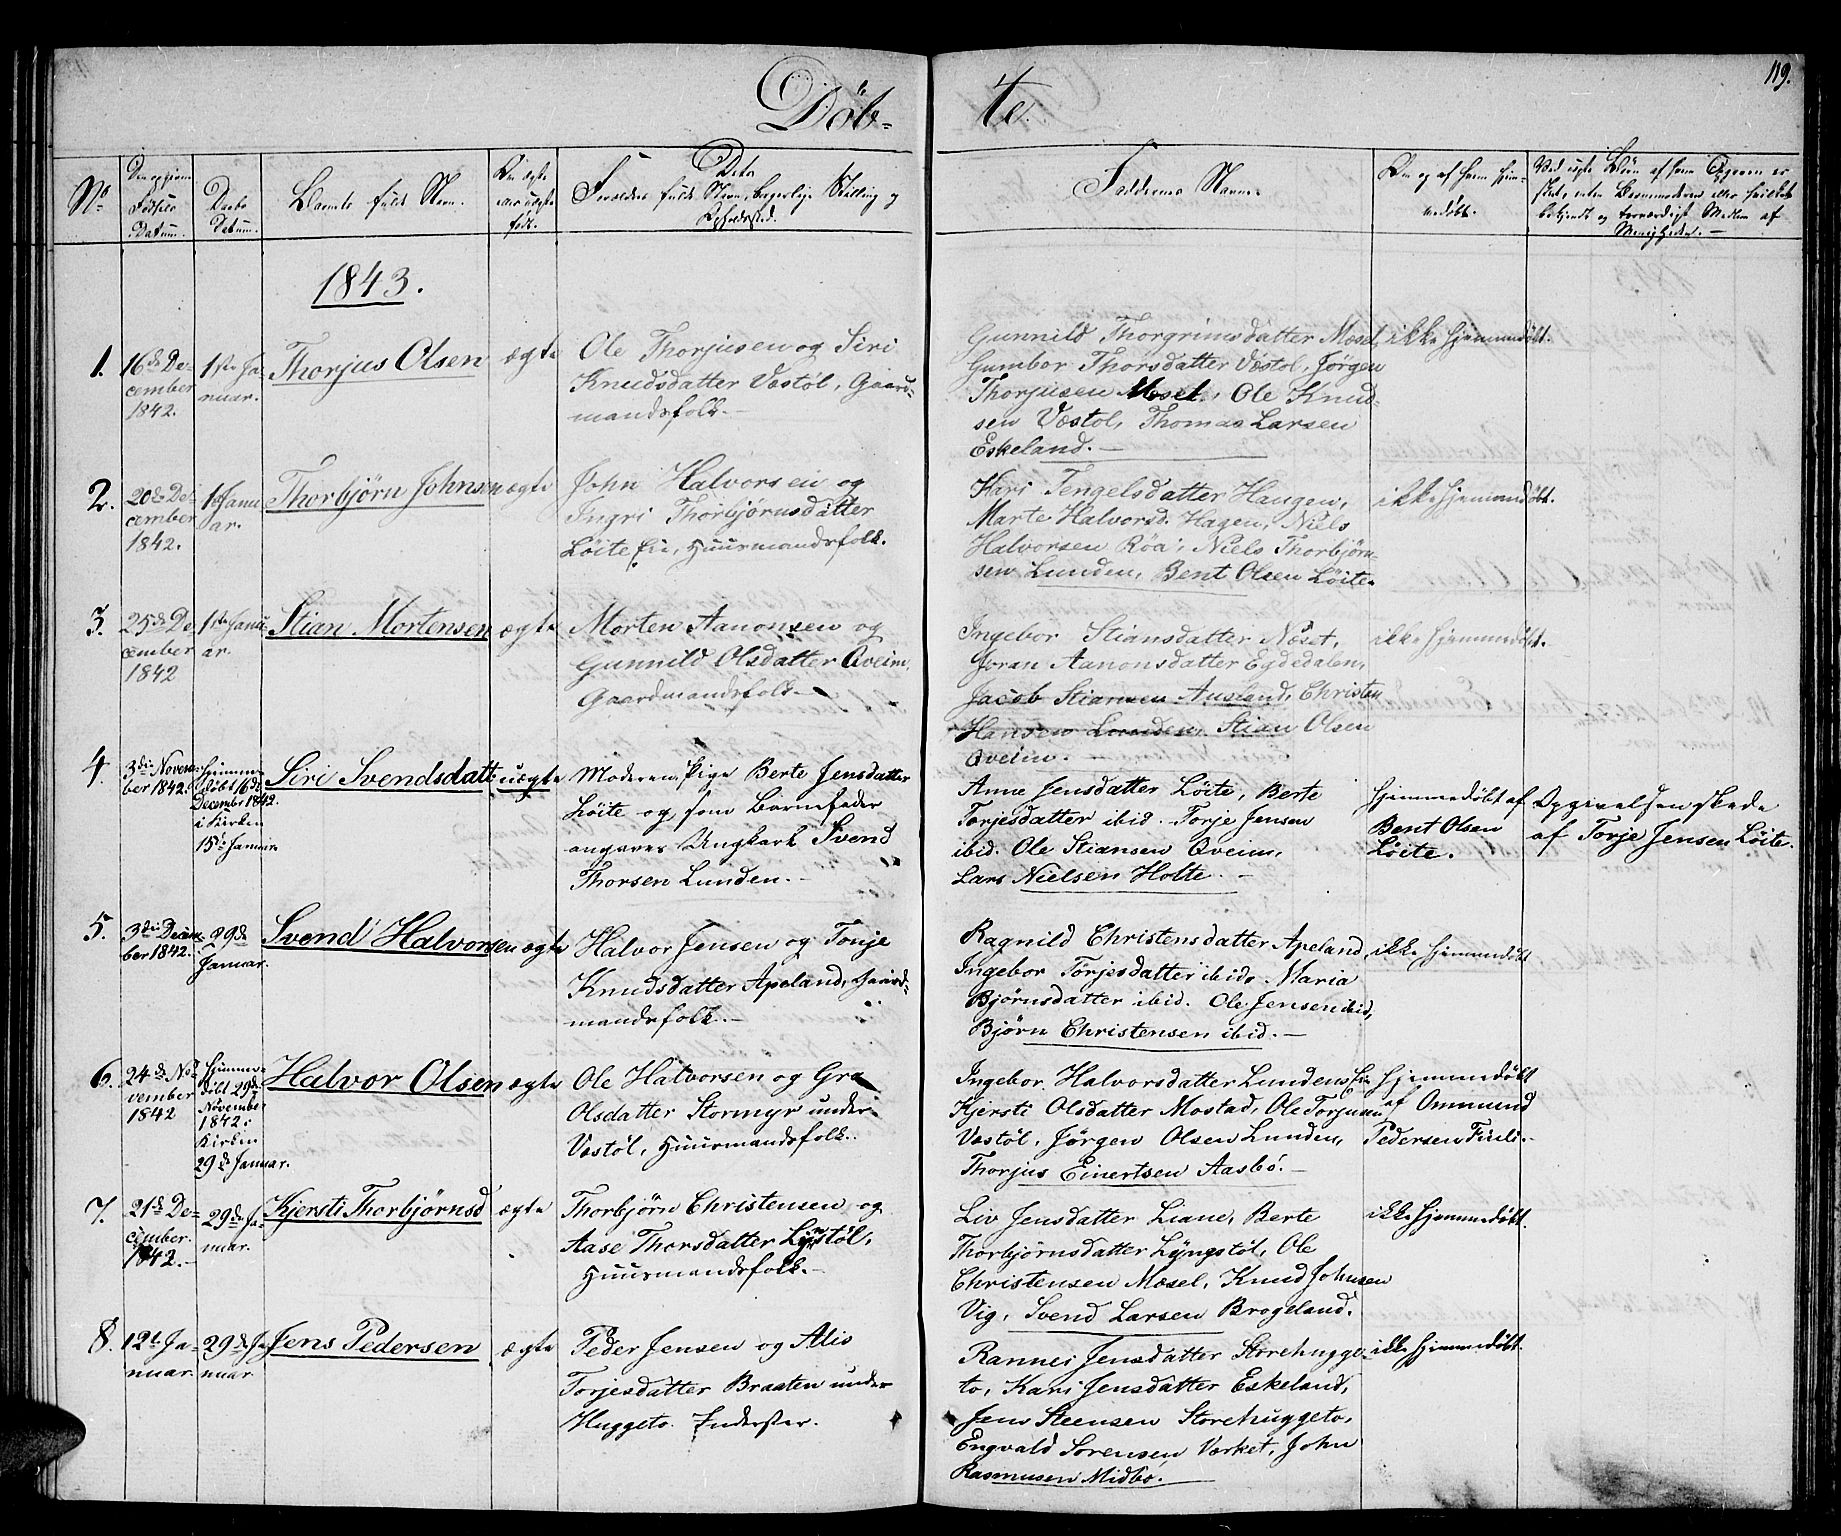 119.
Döb-
te.
No
Den og givne Födsels Datum.
Daabs Datum.
Barnets fulde Navn.
Om ægte eller uægte födt.
Dets
Forældres fulde Navn, borgerlige Stilling og
Opholdssted.
Faddernes Navne.
Om og af hvem hjem-
medöbt.
1843.
1.
16de De-
cember
1842.
1ste Ja-
nuar.
Thorjus Olsen
ægte
Ole Thorjusen og Siri
Knudsdatter Væstöl, Gaard-
mandsfolk.-
Gunnild Thorgrimsdatter Mæsel,
Gumbor Thorsdatter Væstöl, Jörgen
Thorjusen Mæsel, Ole Knud-
sen Væstöl, Thomas Larsen
Eskeland.-
ikke hjemmedöbt.
2.
20de De-
cember
1842.
1ste Janu-
ar.
Thorbjörn Johnsen
ægte
John Halvorsen og
Ingri Thorbjörnsdatter
Löite Eie, Huusmandsfolk.
Kari Tengelsdatter Haugen,
Marte Halvorsd. Hagen, Niels
Halvorsen Röa, Niels Thorbjörn-
sen Lunden, Bent Olsen Löite.
ikke hjemmedöbt.
3.
25de De-
cember
1842
1ste Janu-
ar.
Stian Mortensen
ægte
Morten Aanonsen og
Gunnild Olsdatter Qveim,
Gaardmandsfolk.-
Ingebor Stiansdatter Næset,
Joran Aanonsdatter Egdedalen,
Jacob Stiansen Ausland, Christen
Hansen Lunden, Stian Olsen
Qveim.-
ikke hjemmedöbt.
4.
3die Novem-
ber 1842.
Hjemme-
döbt 16de
December 1842.
i Kirken
15de Januar
Siri Svendsdatt.
uægte
Moderen Pige Berte Jensdatter
Löite og som Barnefader
angaves Ungkarl Svend
Thorsen Lunden.-
Anne Jensdatter Löite, Berte
Torjesdatter ibid. Torje Jensen
ibid. Ole Stiansen Qveim,
Lars Nielsen Holte.-
Hjemmedöbt af
Bent Olsen
Löite.
Opgivelsen skede
af Torje Jensen Löite.
5.
3die Decem-
ber 1842.
29de
Januar.
Svend Halvorsen
ægte
Halvor Jensen og Tonje
Knudsdatter Apeland, Gaard-
mandsfolk.-
Ragnild Christensdatter Apeland,
Ingebor Torjesdatter ibid. Maria
Björnsdatter ibid. Ole Jensen ibid,
Björn Christensen ibid.-
ikke hjemmedöbt
6.
24de No-
vember
1842
Hjemme-
döbt 29de
November
1842 i
Kirken
29de Januar.
Halvor Olsen
ægte
Ole Halvorsen og Gro
Olsdatter Stormyr under
Væstöl, Huusmandsfolk.
Ingebor Halvorsdatter Lundens Eie
Kjersti Olsdatter Mostad, Ole Torjusen
Væstöl, Jörgen Olsen Lunden,
Thorjus Einertsen Aasbö.-
Hjemmedöbt
af Ommund
Pedersen Fiuli.-
7.
21de De-
cember.
1842.-
29de Ja-
nuar.
Kjersti Thorbjörnsd
ægte
Thorbjörn Christensen og
Aase Thorsdatter Lyngstöl,
Huusmandsfolk.-
Liv Jensdatter Liane, Berte
Thorbjörnsdatter Lyngstöl, Ole
Christensen Mæsel, Knud Johnsen
Vig, Svend Larsen Brogeland.
ikke hjemmedöbt.
8.
12te Ja-
nuar
29de Ja-
nuar
Jens Pedersen
ægte
Peder Jensen og Alis
Torjesdatter Braaten under
Huggeto. Inderster.
Rannei Jensdatter Storehugge-
to, Kari Jensdatter Eskeland,
Jens Steensen Storehuggeto,
Engvald Sorensen Værket, John
Rasmusen Midbö.-
ikke hjemmedöbt.